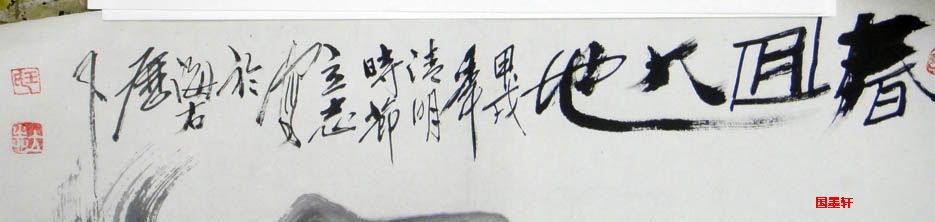 春回大地
甲戌年
清明
時節
立志
寫
於
海右
歷
下
国墨轩